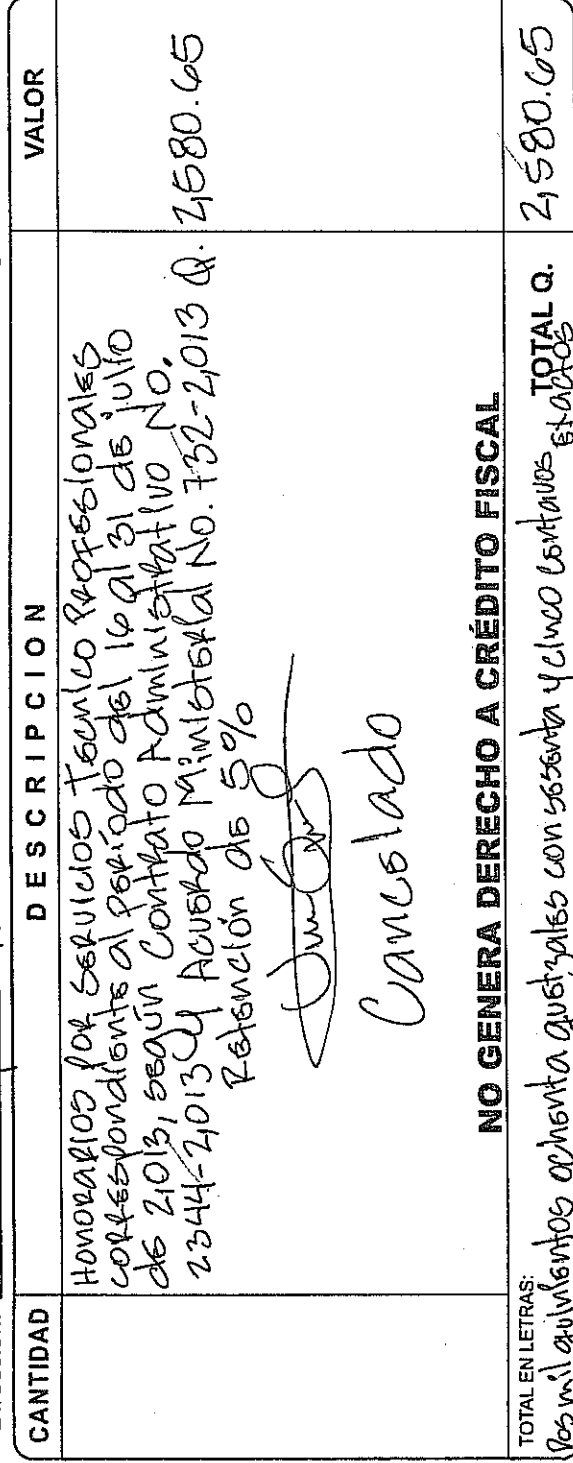 CANTIDAD
DESCRIPCION
VALOR
Honorarios por servicios técnico profesionales
correspondiente al período del 16 al 31 de julio
de 2,013, según Contrato Administrativo No.
2344-2,013 y Acuerdo Ministerial No. 732-2,013 Q. 2,580.65
Retención de 5%
Cancelado
NO GENERA DERECHO A CRÉDITO FISCAL
TOTAL EN LETRAS:
Dos mil quinientos ochenta quetzales con sesenta y cinco centavos exactos
TOTAL Q.
2,580.65